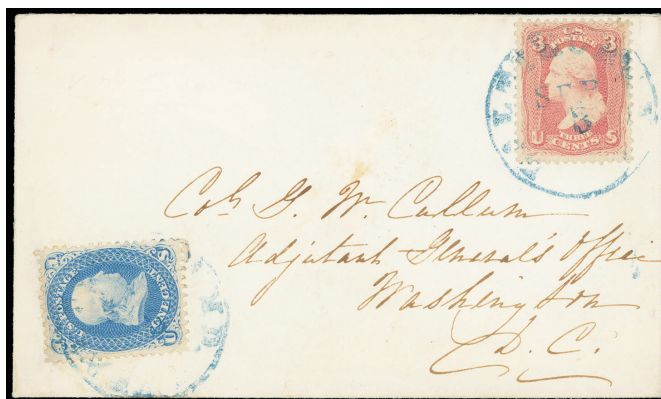 U.S.
POSTAGE
3 3
SEP
5
U THREE S
CENTS
Col G. W. Cullum
Adjutant General's Office
Washington
D. C.
U.S. POSTAGE
ONE CENT